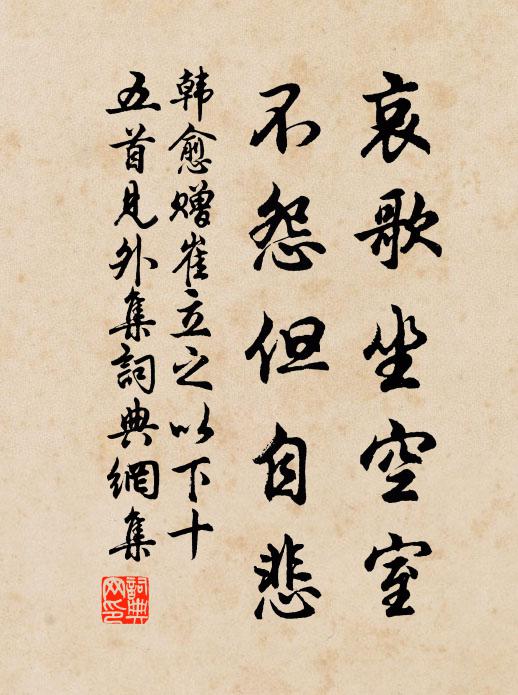 哀歌坐空室
不怨但自悲
韩愈赠崔立之以下十
五首見外集詞典網集
詞典
网印